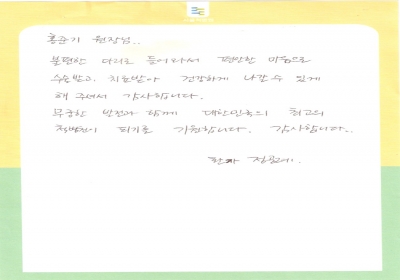 홍준기 원장님..
불편한 다리로 들어와서 편안한 마음으로
수술받고 치료받아 건강하게 나갈 수 있게
해 주셔서 감사합니다.
무궁한 발전과 함께 대한민국의 최고의
병원이 되기를 기원합니다. 감사합니다..
환자